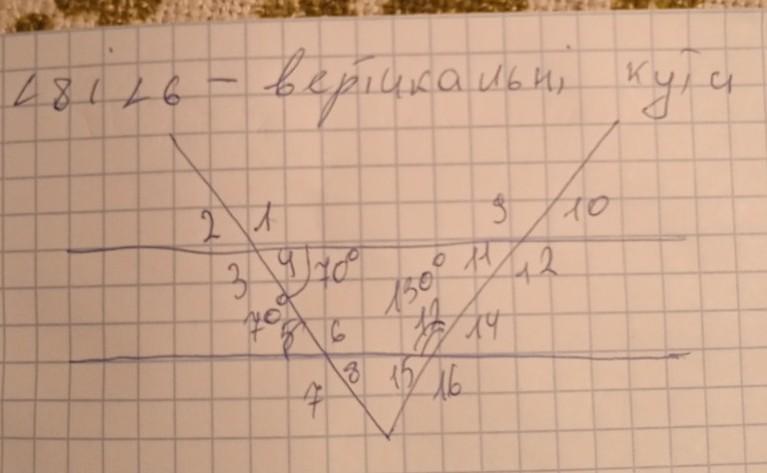 ∠8 і ∠6 - вертикальні кути
2 1 9 10
3 4 70° 11 12
130°
70° 5 6 14
7 8 15 16